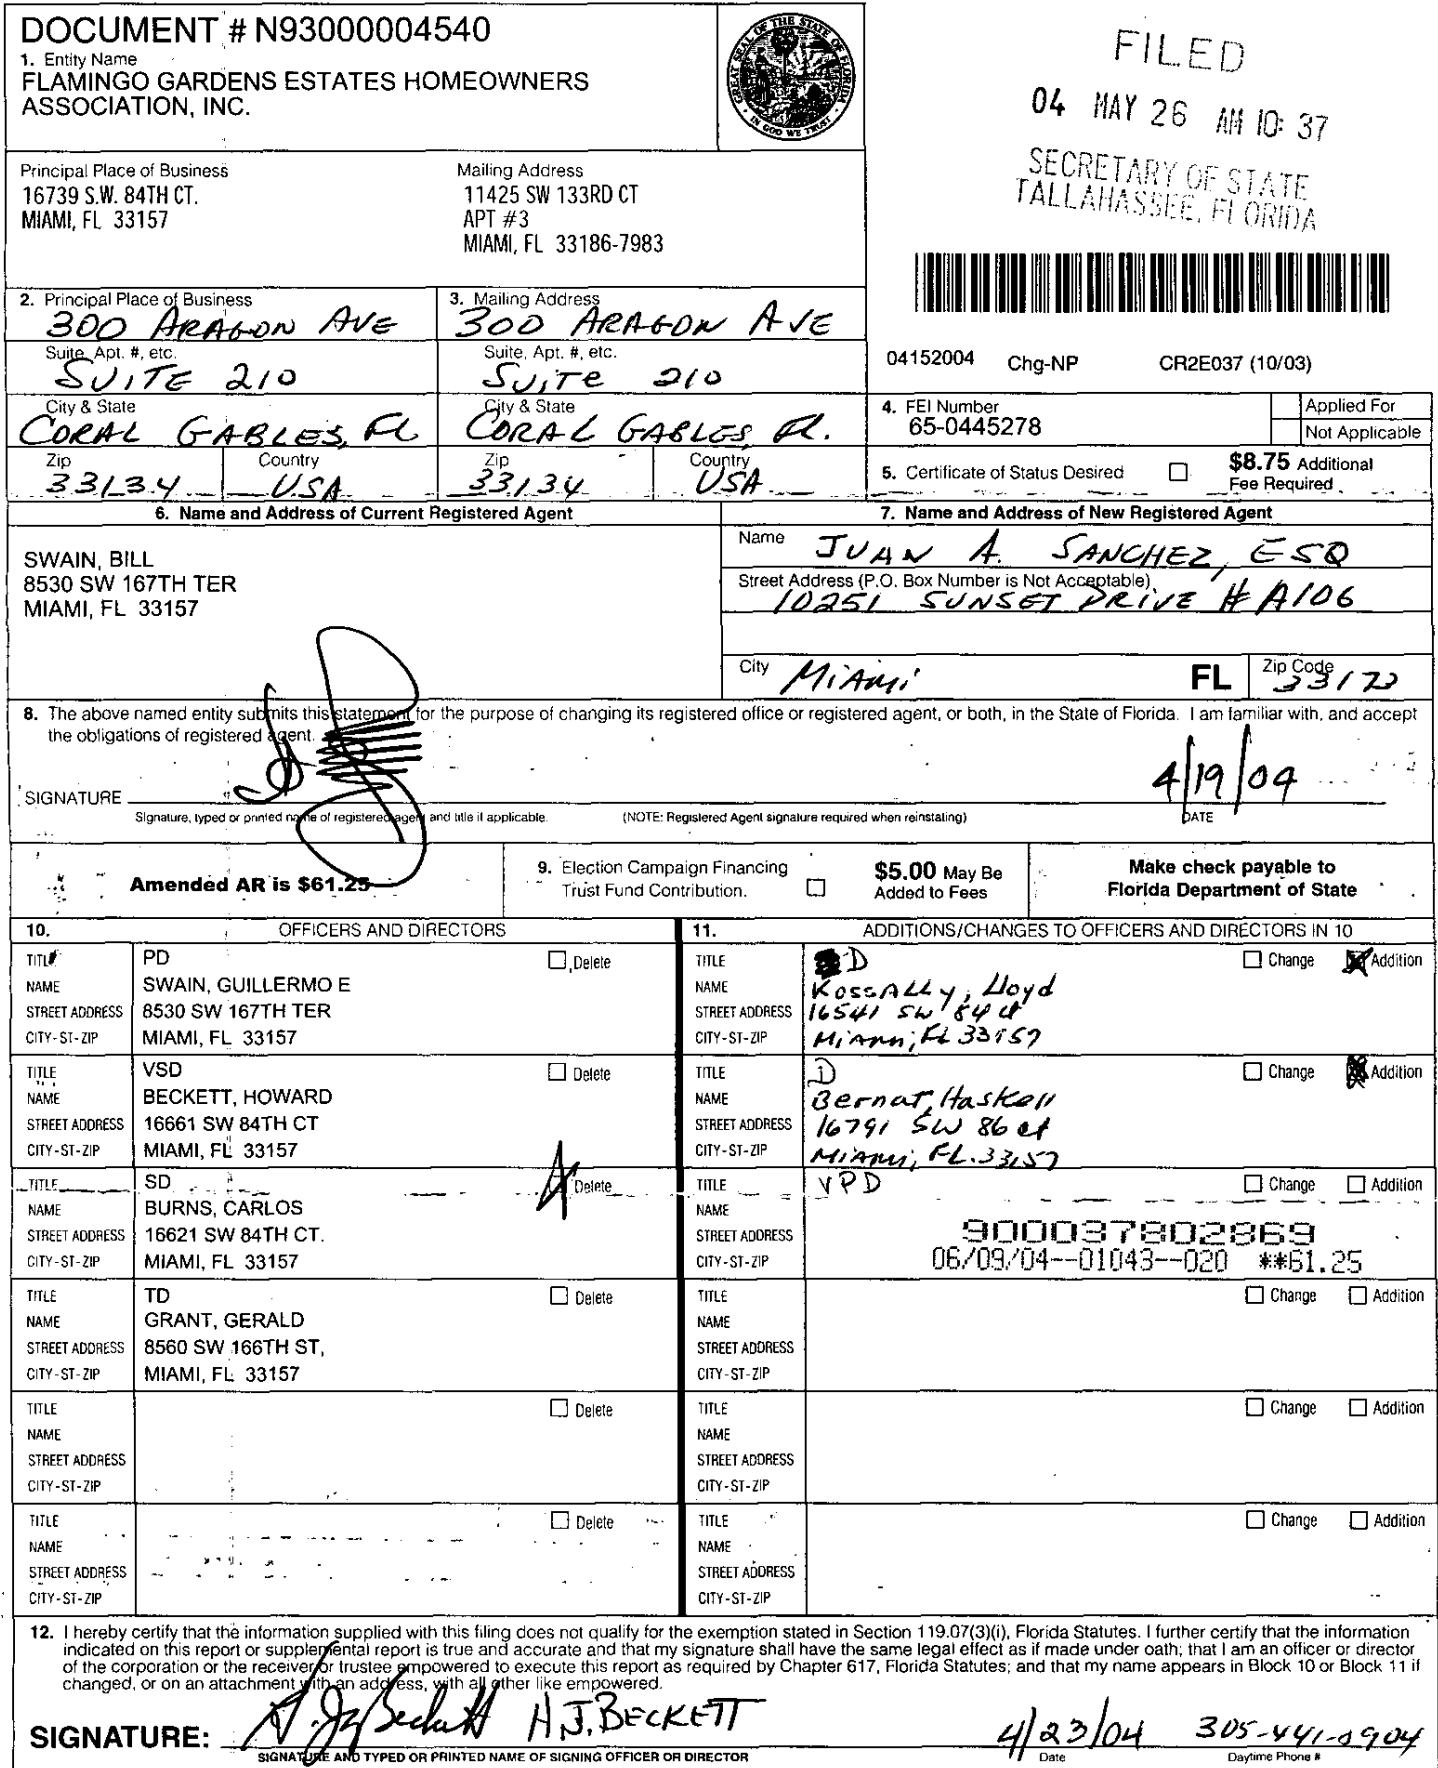 DOCUMENT # N93000004540
1. Entity Name
FLAMINGO GARDENS ESTATES HOMEOWNERS
ASSOCIATION, INC.
GREAT SEAL OF THE STATE OF FLORIDA
IN GOD WE TRUST
FILED
04 MAY 26 AM 10: 37
SECRETARY OF STATE
TALLAHASSEE, FLORIDA
Principal Place of Business
16739 S.W. 84TH CT.
MIAMI, FL 33157
Mailing Address
11425 SW 133RD CT
APT #3
MIAMI, FL 33186-7983
2. Principal Place of Business
300 ARAGON AVE
Suite, Apt. #, etc.
SUITE 210
City & State
CORAL GABLES, FL
Zip
33134
Country
USA
3. Mailing Address
300 ARAGON AVE
Suite, Apt. #, etc.
SUITE 210
City & State
CORAL GABLES, FL.
Zip
33134
Country
USA
04152004 Chg-NP CR2E037 (10/03)
4. FEI Number
65-0445278
Applied For
Not Applicable
5. Certificate of Status Desired
$8.75 Additional
Fee Required
6. Name and Address of Current Registered Agent
SWAIN, BILL
8530 SW 167TH TER
MIAMI, FL 33157
7. Name and Address of New Registered Agent
Name JUAN A. SANCHEZ, ESQ
Street Address (P.O. Box Number is Not Acceptable)
10251 SUNSET DRIVE # A106
City MiAmi FL Zip Code 33173
8. The above named entity submits this statement for the purpose of changing its registered office or registered agent, or both, in the State of Florida. I am familiar with, and accept
the obligations of registered agent.
SIGNATURE
4/19/04
Signature, typed or printed name of registered agent and title if applicable. (NOTE: Registered Agent signature required when reinstating) DATE
Amended AR is $61.25
9. Election Campaign Financing
Trust Fund Contribution.
$5.00 May Be
Added to Fees
Make check payable to
Florida Department of State
10. OFFICERS AND DIRECTORS
TITLE PD Delete
NAME SWAIN, GUILLERMO E
STREET ADDRESS 8530 SW 167TH TER
CITY-ST-ZIP MIAMI, FL 33157
TITLE VSD Delete
NAME BECKETT, HOWARD
STREET ADDRESS 16661 SW 84TH CT
CITY-ST-ZIP MIAMI, FL 33157
TITLE SD Delete
NAME BURNS, CARLOS
STREET ADDRESS 16621 SW 84TH CT.
CITY-ST-ZIP MIAMI, FL 33157
TITLE TD Delete
NAME GRANT, GERALD
STREET ADDRESS 8560 SW 166TH ST,
CITY-ST-ZIP MIAMI, FL 33157
TITLE Delete
NAME
STREET ADDRESS
CITY-ST-ZIP
TITLE Delete
NAME
STREET ADDRESS
CITY-ST-ZIP
11. ADDITIONS/CHANGES TO OFFICERS AND DIRECTORS IN 10
TITLE D Change Addition
NAME Kossally, Lloyd
STREET ADDRESS 16541 SW 84 ct
CITY-ST-ZIP Miami, FL 33157
TITLE D Change Addition
NAME Bernat, Haskell
STREET ADDRESS 16791 SW 86 ct
CITY-ST-ZIP Miami, FL. 33157
TITLE VPD Change Addition
NAME
STREET ADDRESS 900037802869
CITY-ST-ZIP 06/09/04--01043--020 **61.25
TITLE Change Addition
NAME
STREET ADDRESS
CITY-ST-ZIP
TITLE Change Addition
NAME
STREET ADDRESS
CITY-ST-ZIP
TITLE Change Addition
NAME
STREET ADDRESS
CITY-ST-ZIP
12. I hereby certify that the information supplied with this filing does not qualify for the exemption stated in Section 119.07(3)(i), Florida Statutes. I further certify that the information
indicated on this report or supplemental report is true and accurate and that my signature shall have the same legal effect as if made under oath; that I am an officer or director
of the corporation or the receiver or trustee empowered to execute this report as required by Chapter 617, Florida Statutes; and that my name appears in Block 10 or Block 11 if
changed, or on an attachment with an address, with all other like empowered.
SIGNATURE: H.J. BECKETT 4/23/04 305-441-0904
SIGNATURE AND TYPED OR PRINTED NAME OF SIGNING OFFICER OR DIRECTOR Date Daytime Phone #